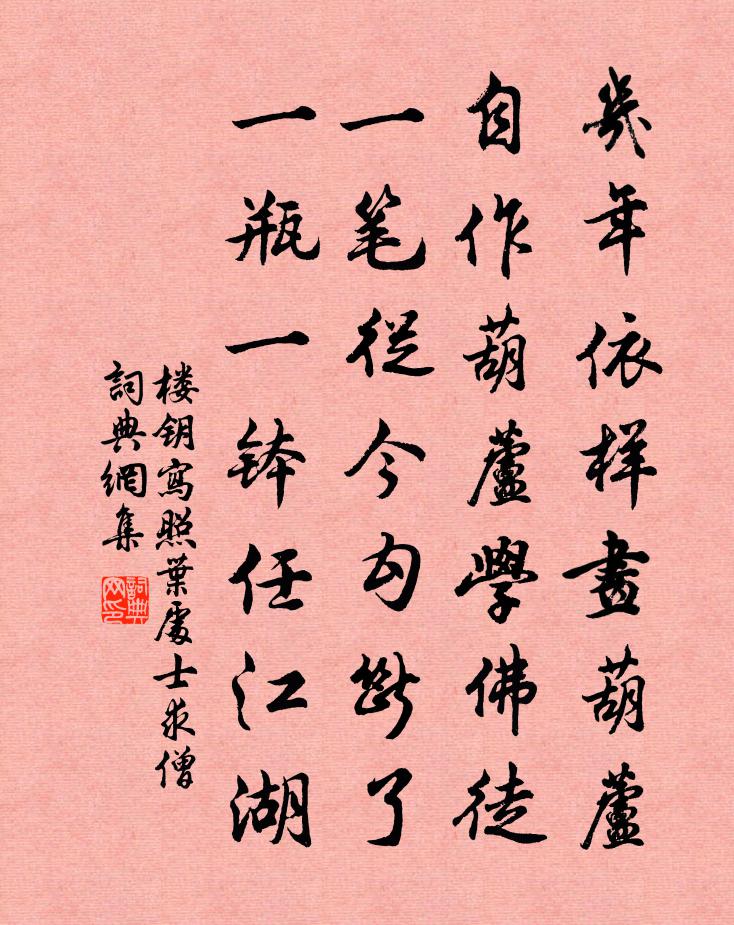 幾年依样畫葫蘆
自作葫蘆學佛徒
一笔從今勾斷了
一瓶一钵任江湖
楼钥寫照葉處士求僧
詞典網集
詞典網印